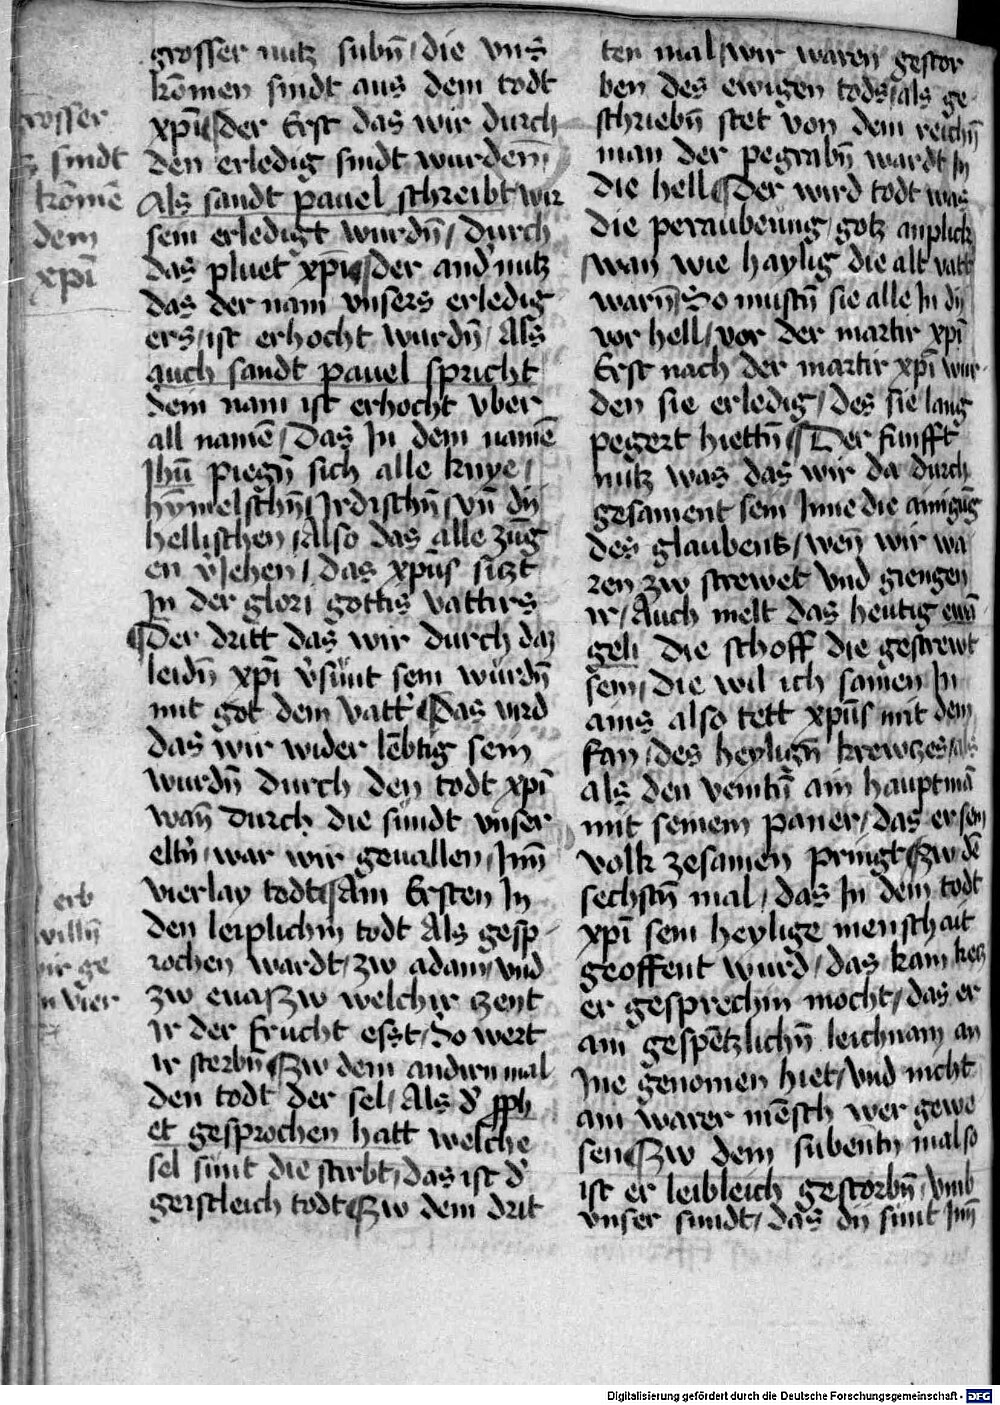 grosser nutz subn̄ / die vns̄
kōmen sindt aus dem todt
xp̄i ¶ der Erst das wir durch
den erledig sindt wurdenn̄
Als sandt pauel schreibt wir
sein erledigt wurdn̄ / durch
das pluet xp̄i ¶ der and nutz
das der nam vnsers erledig
ers / ist erhocht wurdn̄ / Als
auch sandt pauel spricht
dem nam ist erhocht vber
all namē / Das In dem namē
Jhū piegn̄ sich alle knye /
hȳmelschn̄ / Irdischn̄ / vn̄ dy
hellischen / Also das alle zūg
en v̄iehen / das xp̄us siczt
In der glori gottis vattirs
¶ Der dritt das wir durch daz
leidn̄ xp̄i v̄sünt sein würdn̄
mit got dem vatt̄ ¶ Das vird
das wir wider lēbtig sein
wurdn̄ durch den todt xp̄i
wan̄ durch die sündt vnser
eltn̄ / war wir geuallen / Inn̄
vierlay todt ¶ Am Ersten In
den leiplichn̄ todt Als gesp-
rochen wardt / zw adam / vnd
zw eua ¶ Zw welchir zeyt
Ir der frucht esst / So wert
ir sterbn̄ ¶ Zw dem andirn mal
den todt der sel / Als d̄ pph
et gesprochen hatt welche
sel sünt die stirbt / das ist d̄
geistleich todt ¶ Zw dem drit
ten mal / wir waren gestor
ben des ewigen tods / als ge-
schriebn̄ stet von dem reichn̄
man der pegrabn̄ wardt In
die hell ¶ Der vird todt was
die peraubeung / gotz anplick
wan wie haylig die alt vatt̄
warn̄ / So mustn̄ sie alle In dy
vor hell / vor der martir xp̄i
Erst nach der martir xp̄i wur-
den sie erledig / des sie lang
pegert hiettn̄ ¶ Der funfft
nutz was das wir da durch
gesament sein Inne die ainigūg
des glaubens / wen̄ wir wa
ren zw strewet vnd giengen
ir / Auch melt das heutig ewā
geli die schoff die gestrewt
sein / die wil ich samen In
ains also tett xp̄us mit dem
fan / des heylign̄ krewczes / als
als den veintn̄ ain hauptmā
mit seinem paner / das er sein
volk zesamen pringt ¶ Zw dē
sechstn̄ mal / das In dem todt
xp̄i sein heylige menschait
geoffent wurd / das kam kecz
er gesprechn̄ mocht / das er
ain gespētzlichn̄ leichnam an
Ine genomen hiet / vnd nicht
ain warer mēsch wer gewe
sen ¶ Zw dem subentn̄ mal so
ist er leibleich gestorbn̄ / vmb
vnser sundt / das dy sunt Inn̄
rosser
sindt
kōmē
dem
xp̄i
erb
willn̄
wir ge
n vier
Digitalisierung gefördert durch die Deutsche Forschungsgemeinschaft - DFG